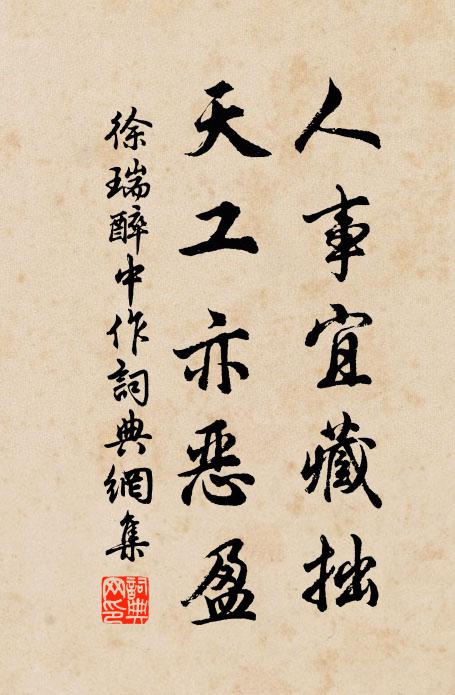 人事宜藏拙
天工亦恶盈
徐瑞醉中作詞典網集
詞典